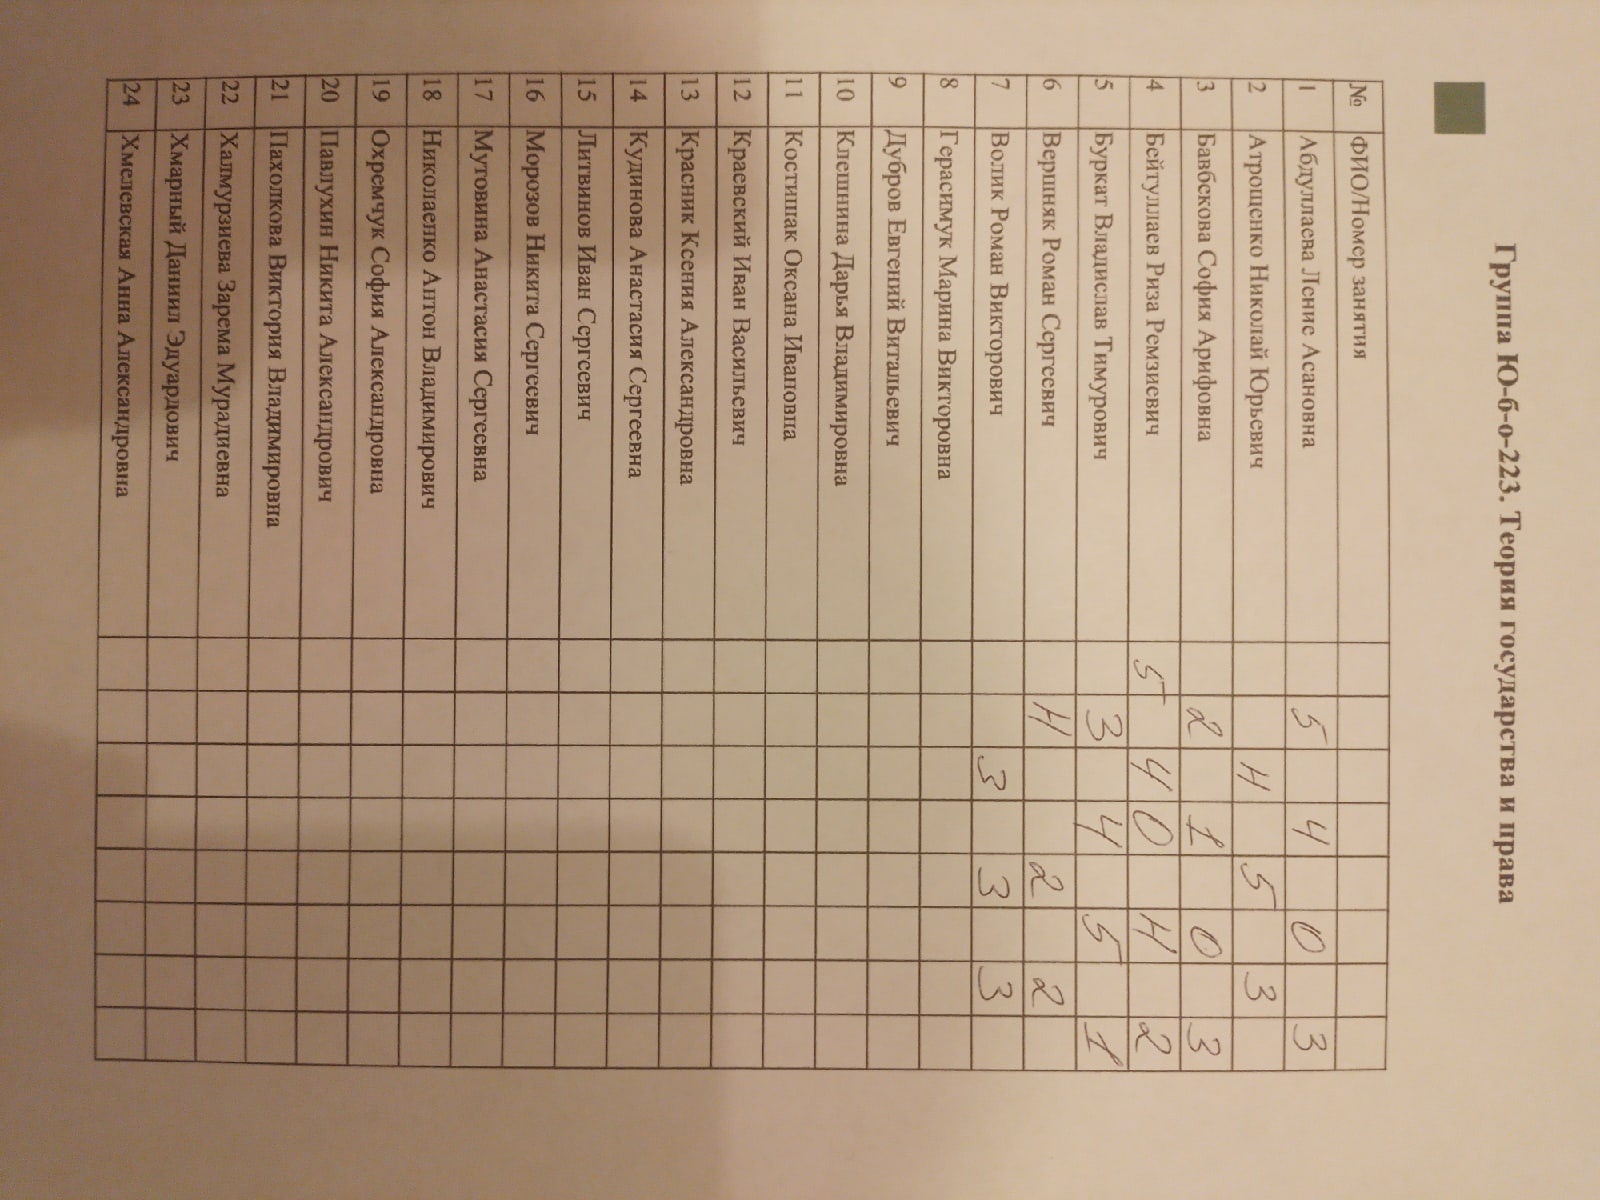 Группа Ю-б-о-223. Теория государства и права
№ ФИО/Номер занятия
1 Абдуллаева Ление Асановна 5 4 0 3
2 Атрощенко Николай Юрьевич Н 5 3
3 Бавбекова София Арифовна 2 1 0 3
4 Бейтуллаев Риза Ремзиевич 5 4 0 Н 2
5 Буркат Владислав Тимурович 3 4 5 1
6 Вершняк Роман Сергеевич Н 2 2
7 Волик Роман Викторович 3 3 3
8 Герасимук Марина Викторовна
9 Дубров Евгений Витальевич
10 Клешнина Дарья Владимировна
11 Костишак Оксана Ивановна
12 Краевский Иван Васильевич
13 Красник Ксения Александровна
14 Кудинова Анастасия Сергеевна
15 Литвинов Иван Сергеевич
16 Морозов Никита Сергеевич
17 Мутовина Анастасия Сергеевна
18 Николаенко Антон Владимирович
19 Охремчук София Александровна
20 Павлухин Никита Александрович
21 Пахолкова Виктория Владимировна
22 Халмурзиева Зарема Мурадиевна
23 Хмарный Даниил Эдуардович
24 Хмелевская Анна Александровна